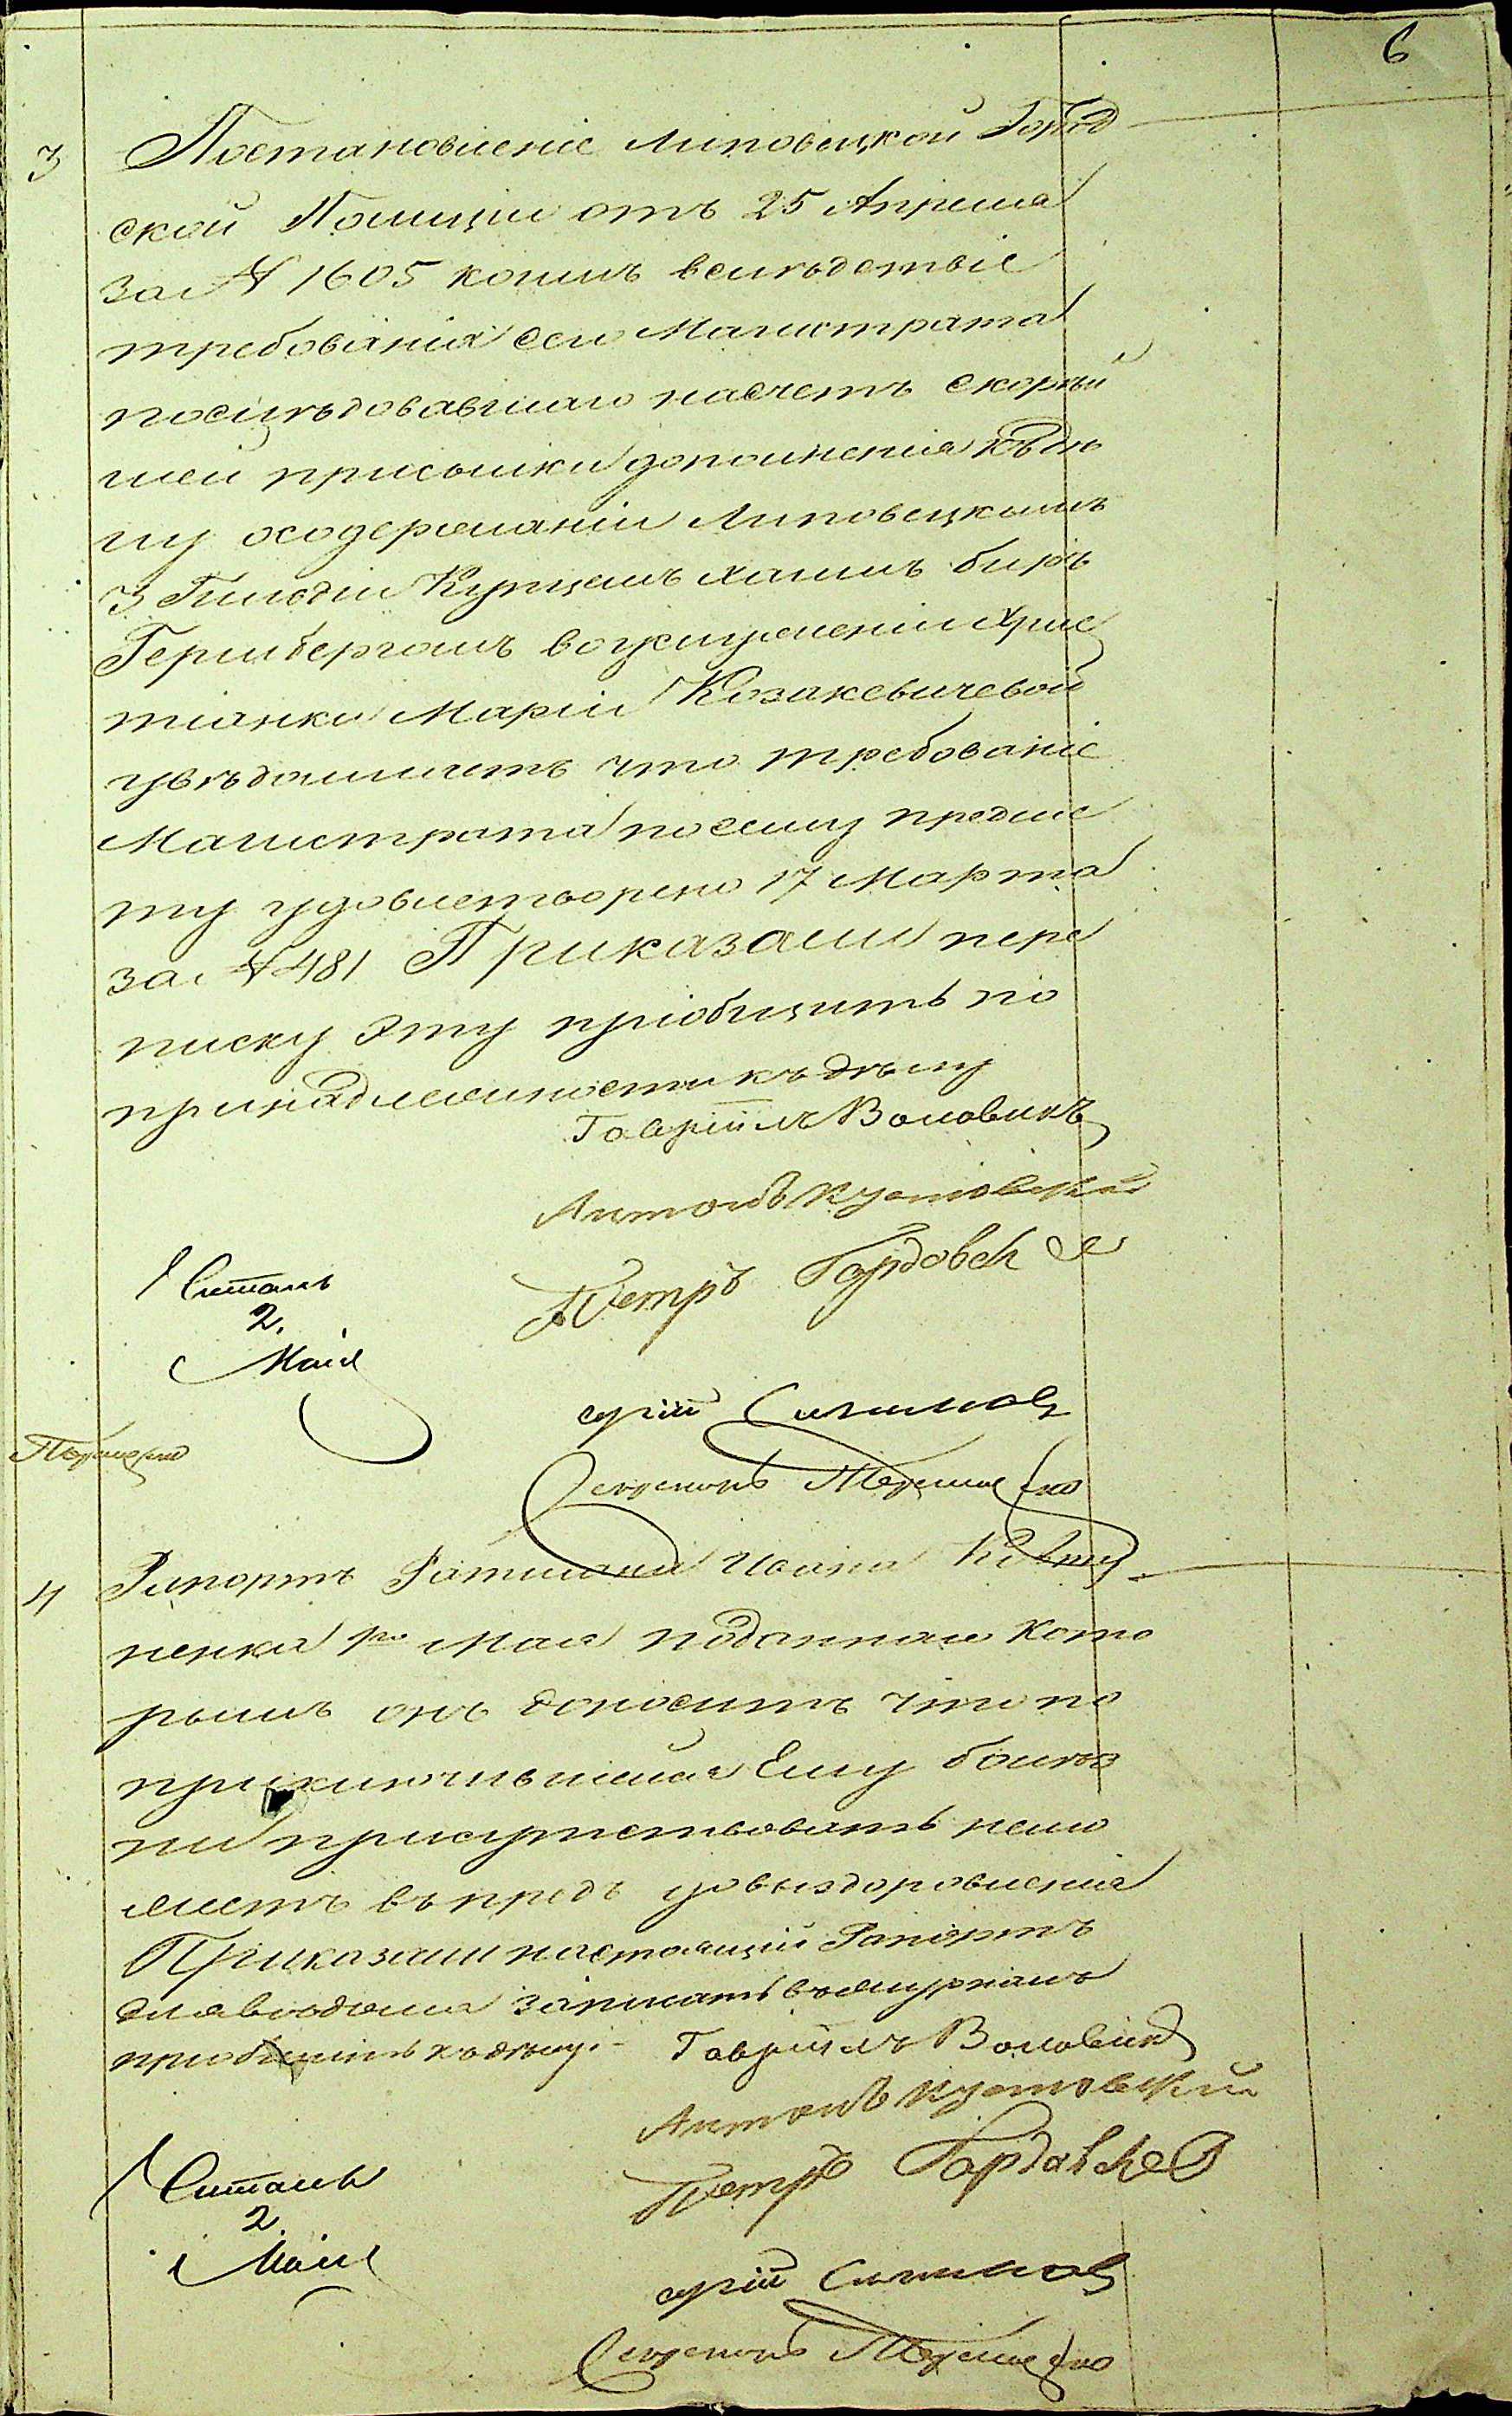 6
3 Постановленіе Липовецкой Город
ской Полиціи отъ 25 Апреля
за № 1605 коимъ вслѣдствіе
требованія сего Магистрата
послѣдовавшаго насчетъ скорѣй
шей присылки дополненія къ дѣ
лу о содержаніи Липовецкимъ
3 Гильдіи Купцемъ Хаимъ Биръ
Гершбергомъ в услуженіи Хрис
тіанки Маріи Козакевичевой
увѣдомляетъ что требованіе
Магистрата по сему предме
ту удовлетворено 17 Марта
за № 481 Приказали пере
писку эту пріобщить по
принадлежности къ дѣлу
Гавріилъ Воловикъ
Антонъ Кустовскій
Петръ Гордовск
Читалъ
2.
Мая
Секретарь
4 Рапортъ Ратмана Ивана Ковту
ненка 1го Мая поданной кото
рымъ онъ доноситъ что по
приключившейся Ему болѣз
ни присутствовать немо
жетъ въ предь до выздоровленія
Приказали настоящій Рапортъ
для вѣдома записать въ журналъ
пріобщить к дѣлу.
Гавріилъ Воловикъ
Антонъ Кустовскій
Петръ Гордовск
Читалъ
2.
Мая
Секретарь